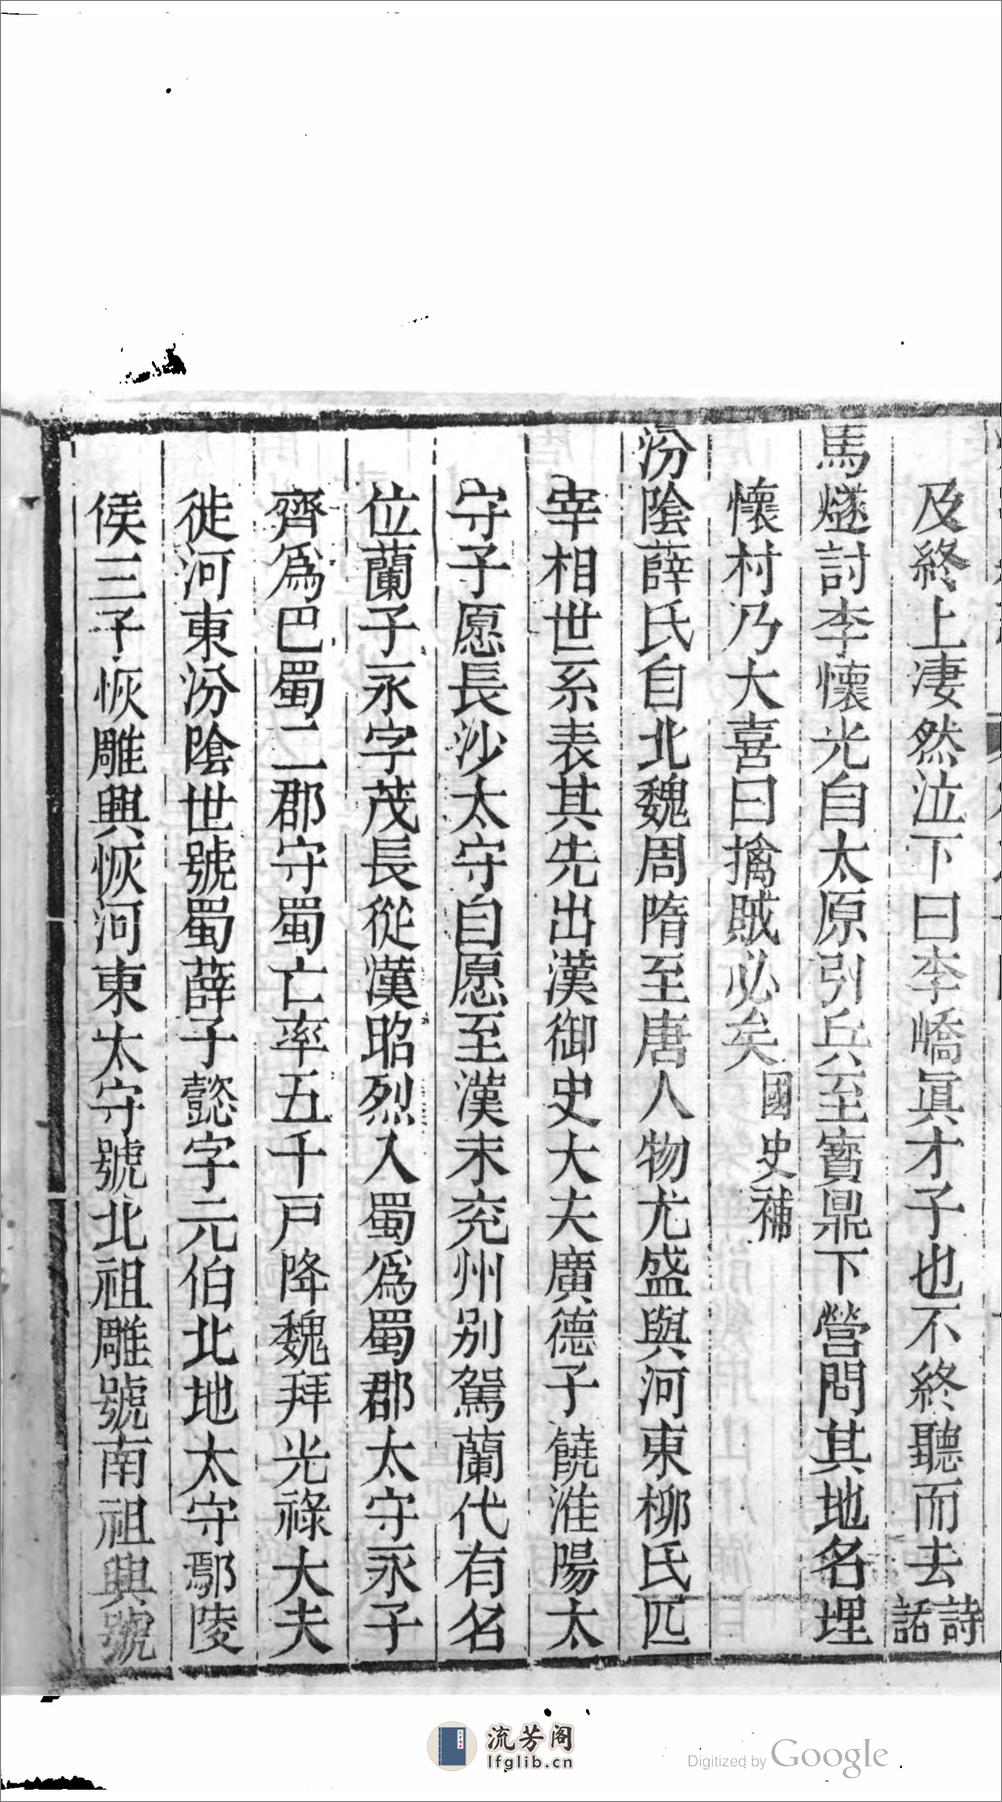 及終上淒然泣下曰李嶠眞才子也不終聽而去詩話
馬燧討李懷光自太原引兵至寳鼎下營問其地名埋
懷村乃大喜曰擒賊必矣國史補
汾隂薛氏自北魏周隋至唐人物尤盛與河東柳氏匹
宰相世系表其先出漢御史大夫廣德子饒淮陽太
守子愿長沙太守自愿至漢末兖州别駕蘭代有名
位蘭子永字茂長從漢昭烈入蜀爲蜀郡太守永子
齊爲巴蜀二郡守蜀亡率五千戸降魏拜光祿大夫
徙河東汾隂世號蜀薛子懿字元伯北地太守鄢陵
侯三子恢雕興恢河東太守號北祖雕號南祖興號
流芳阁
lfglib.cn
Digitized by Google